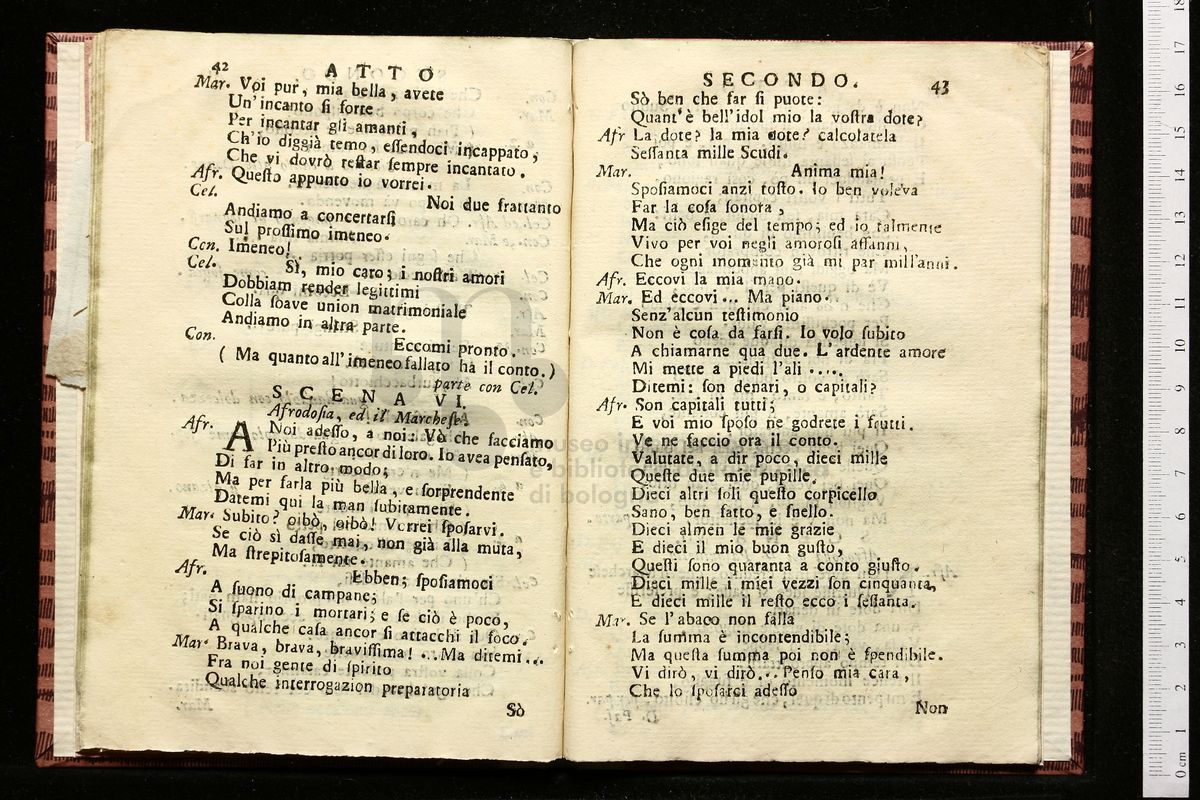 42 ATTO
Mar. Voi pur, mia bella, avete
Un'incanto sì forte
Per incantar gli amanti,
Ch'io diggià temo, eſſendoci incappato,
Che vi dovrò reſtar ſempre incantato.
Afr. Queſto appunto io vorrei.
Cel. Noi due frattanto
Andiamo a concertarſi
Sul proſſimo imeneo.
Con. Imeneo!
Cel. Sì, mio caro; i noſtri amori
Dobbiam render legittimi
Colla ſoave union matrimoniale
Andiamo in altra parte.
Con. Eccomi pronto.
( Ma quanto all'imeneo fallato hà il conto.)
parte con Cel.
SCENA VI.
Afrodoſia, ed il Marcheſe.
Afr. A Noi adeſſo, a noi: Vò che facciamo
Più preſto ancor di loro. Io avea penſato,
Di far in altro modo;
Ma per farla più bella, e ſorprendente
Datemi qui la man ſubitamente.
Mar. Subito? oibò, oibò! Vorrei ſpoſarvi.
Se ciò sì daſſe mai, non già alla muta,
Ma ſtrepitoſamente.
Afr. Ebben; ſpoſiamoci
A ſuono di campane;
Si ſparino i mortari; e ſe ciò è poco,
A qualche caſa ancor ſi attacchi il foco.
Mar. Brava, brava, braviſſima! ...Ma ditemi...
Fra noi gente di ſpirito
Qualche interrogazion preparatoria
Sò
SECONDO. 43
Sò ben che far ſi puote:
Quant'è bell'idol mio la voſtra dote?
Afr La dote? la mia dote? calcolatela
Seſſanta mille Scudi.
Mar. Anima mia!
Spoſiamoci anzi toſto. Io ben voleva
Far la coſa ſonora,
Ma ciò eſige del tempo; ed io talmente
Vivo per voi negli amoroſi affanni,
Che ogni momento già mi par mill'anni.
Afr. Eccovi la mia mano.
Mar. Ed eccovi... Ma piano.
Senz'alcun teſtimonio
Non è coſa da farſi. Io volo ſubito
A chiamarne qua due. L'ardente amore
Mi mette a piedi l'ali .....
Ditemi: ſon denari, o capitali?
Afr. Son capitali tutti;
E voi mio ſpoſo ne godrete i frutti.
Ve ne faccio ora il conto.
Valutate, a dir poco, dieci mille
Queſte due mie pupille.
Dieci altri ſoli queſto corpicello
Sano, ben fatto, e ſnello.
Dieci almen le mie grazie
E dieci il mio buon guſto,
Queſti ſono quaranta a conto giuſto.
Dieci mille i miei vezzi ſon cinquanta,
E dieci mille il reſto ecco i ſeſſanta.
Mar. Se l'abaco non falla
La ſumma è incontendibile;
Ma queſta ſumma poi non è ſpendibile.
Vi dirò, vi dirò... Penſo mia cara,
Che lo ſpoſarci adeſſo
Non